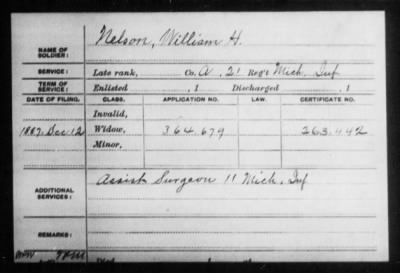 NAME OF SOLDIER: Nelson, William H.
SERVICE: Late rank, Co. A, 21 Reg't Mich. Inf
TERM OF SERVICE: Enlisted , 1 Discharged , 1
DATE OF FILING. CLASS. APPLICATION NO. LAW. CERTIFICATE NO.
Invalid,
1887, Dec 12 Widow, 364.679 263.442
Minor,
ADDITIONAL SERVICES: Assist Surgeon 11 Mich. Inf
REMARKS: